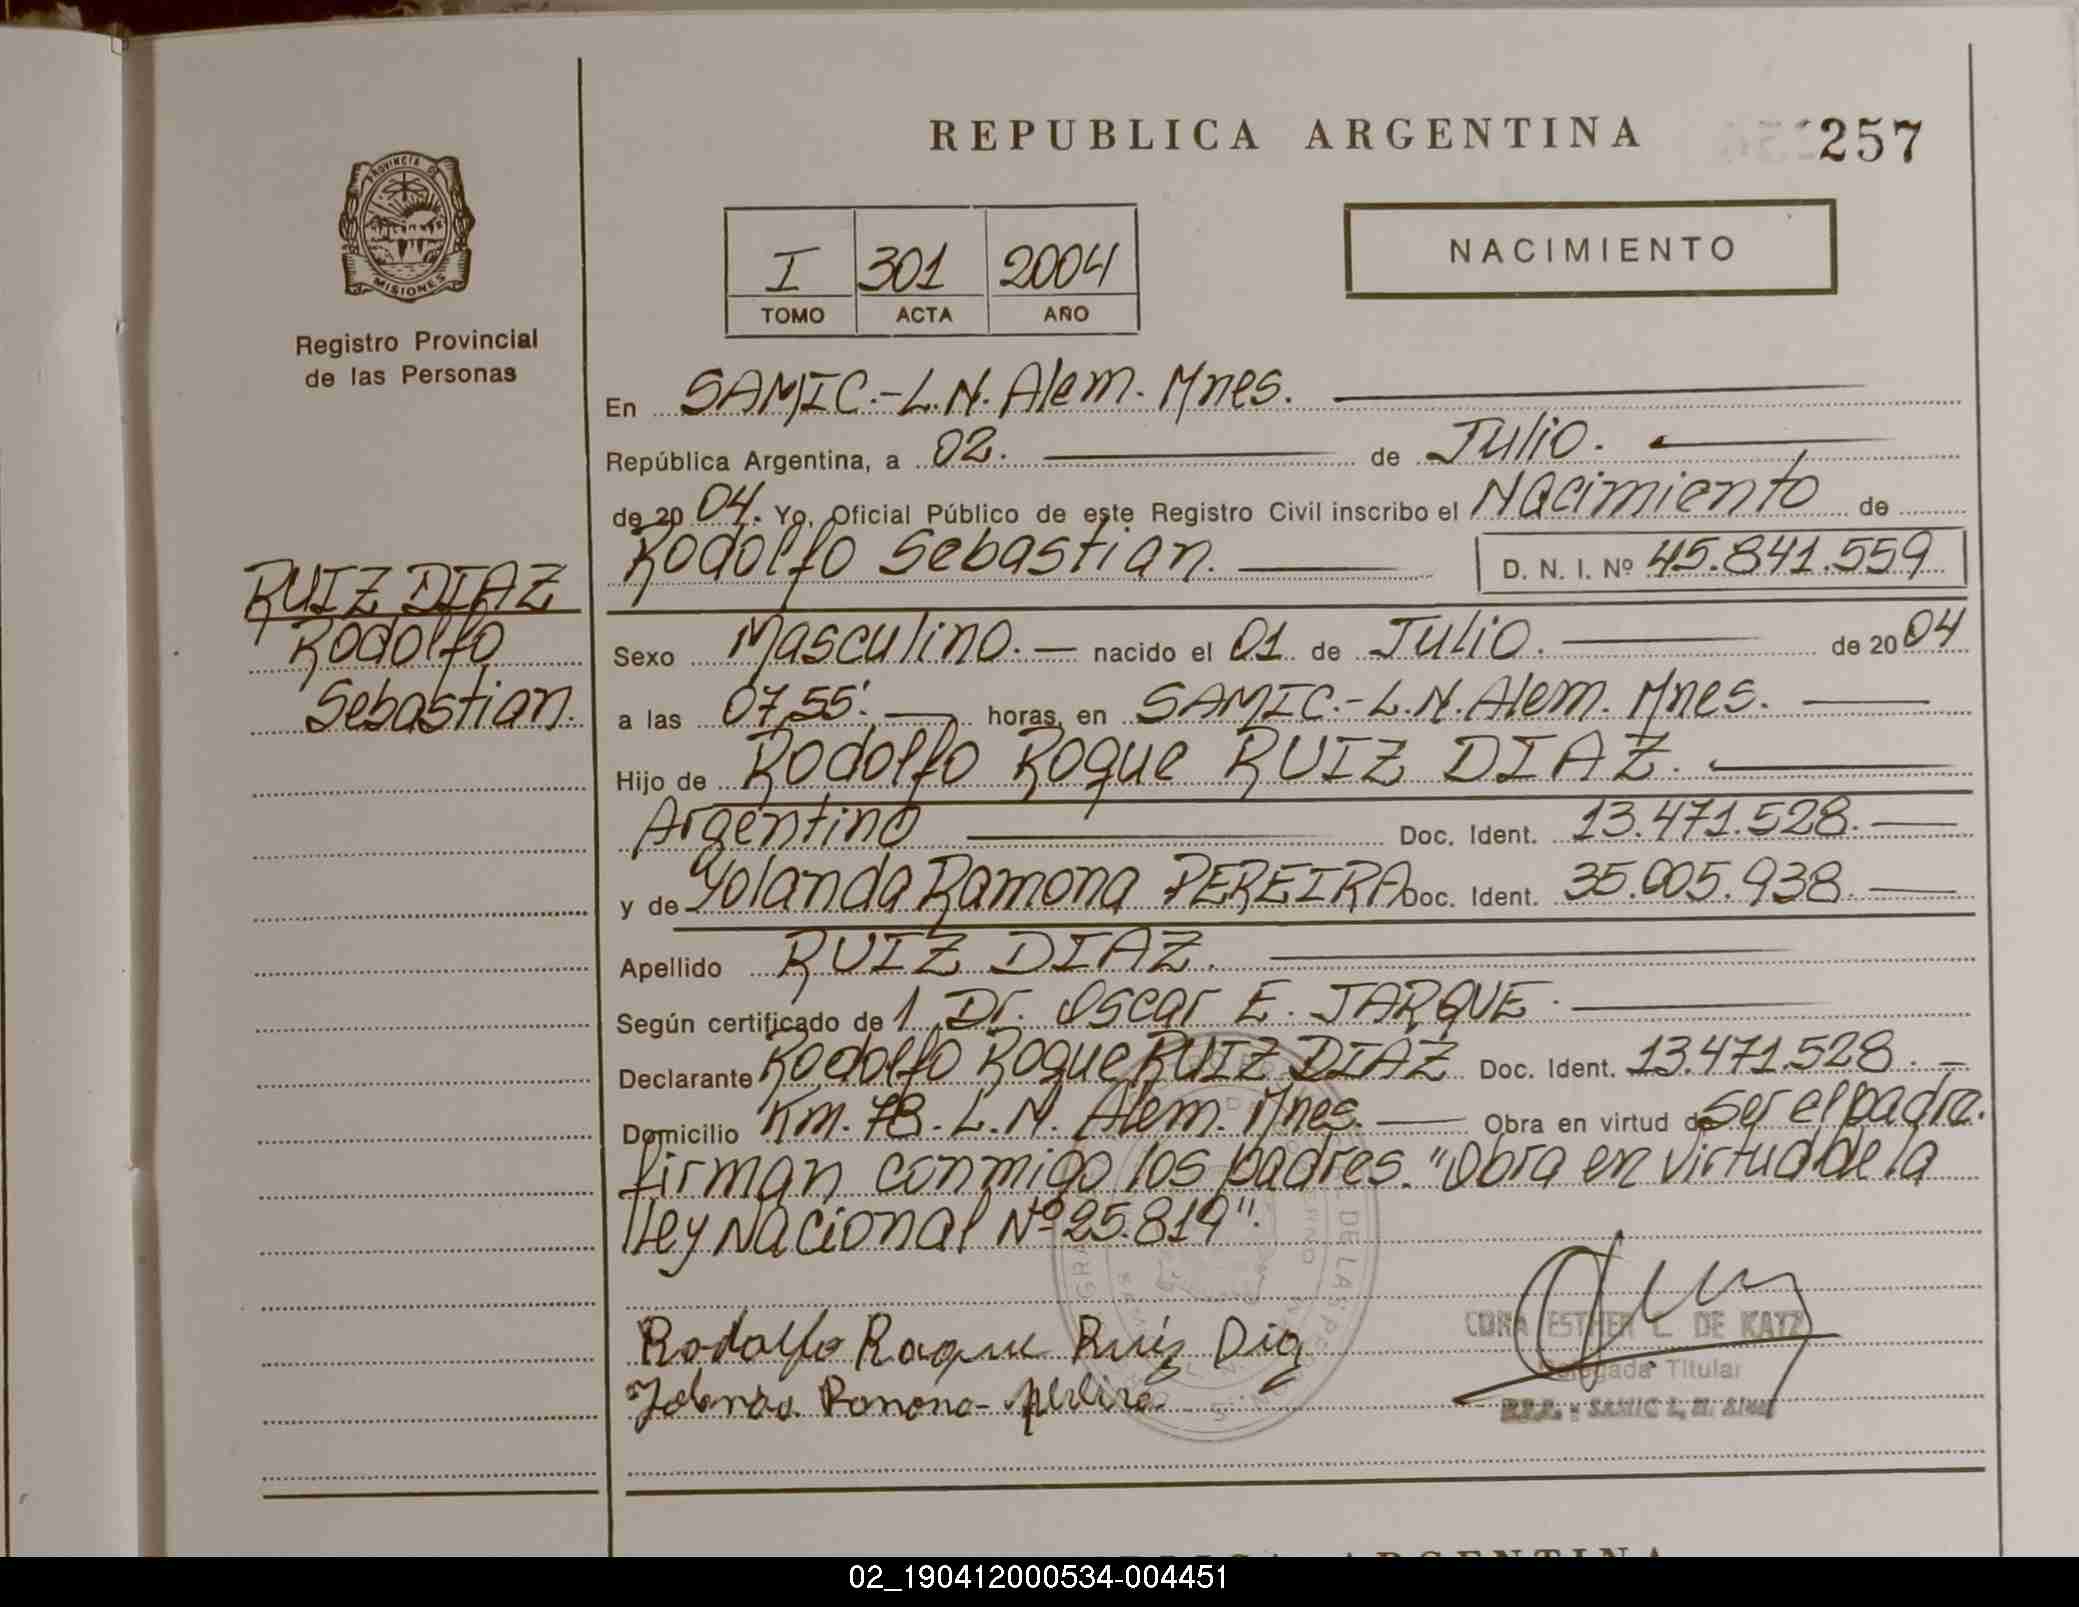 REPUBLICA ARGENTINA
257
PROVINCIA DE
MISIONES
Registro Provincial
de las Personas
I 301 2004
TOMO ACTA AÑO
NACIMIENTO
En SAMIC.-L.N. Alem. Mnes.
República Argentina, a 02. de Julio.
de 20 04. Yo, Oficial Público de este Registro Civil inscribo el Nacimiento de
Rodolfo Sebastian. D. N. I. Nº 45.841.559
RUIZ DIAZ
Rodolfo
Sebastian.
Sexo Masculino. nacido el 01 de Julio. de 20 04
a las 07,55'. horas, en SAMIC.-L.N. Alem. Mnes.
Hijo de Rodolfo Roque RUIZ DIAZ.
Argentino Doc. Ident. 13.471.528.
y de Yolanda Ramona PEREIRA Doc. Ident. 35.005.938.
Apellido RUIZ DIAZ.
Según certificado de 1 Dr. Oscar E. JARQUE.
Declarante Rodolfo Roque RUIZ DIAZ Doc. Ident. 13.471.528.
Domicilio Km. 78. L.N. Alem. Mnes. Obra en virtud de Ser el padre.
firman conmigo los padres. "Obra en virtud de la
Ley Nacional Nº 25.819".
Rodolfo Roque Ruiz Diaz
Yolanda Ramona Pereira
CORA ESTHER L. DE KATZ
Delegada Titular
R.P.P. - SAMIC L. N. ALEM
REPUBLICA ARGENTINA
02_190412000534-004451